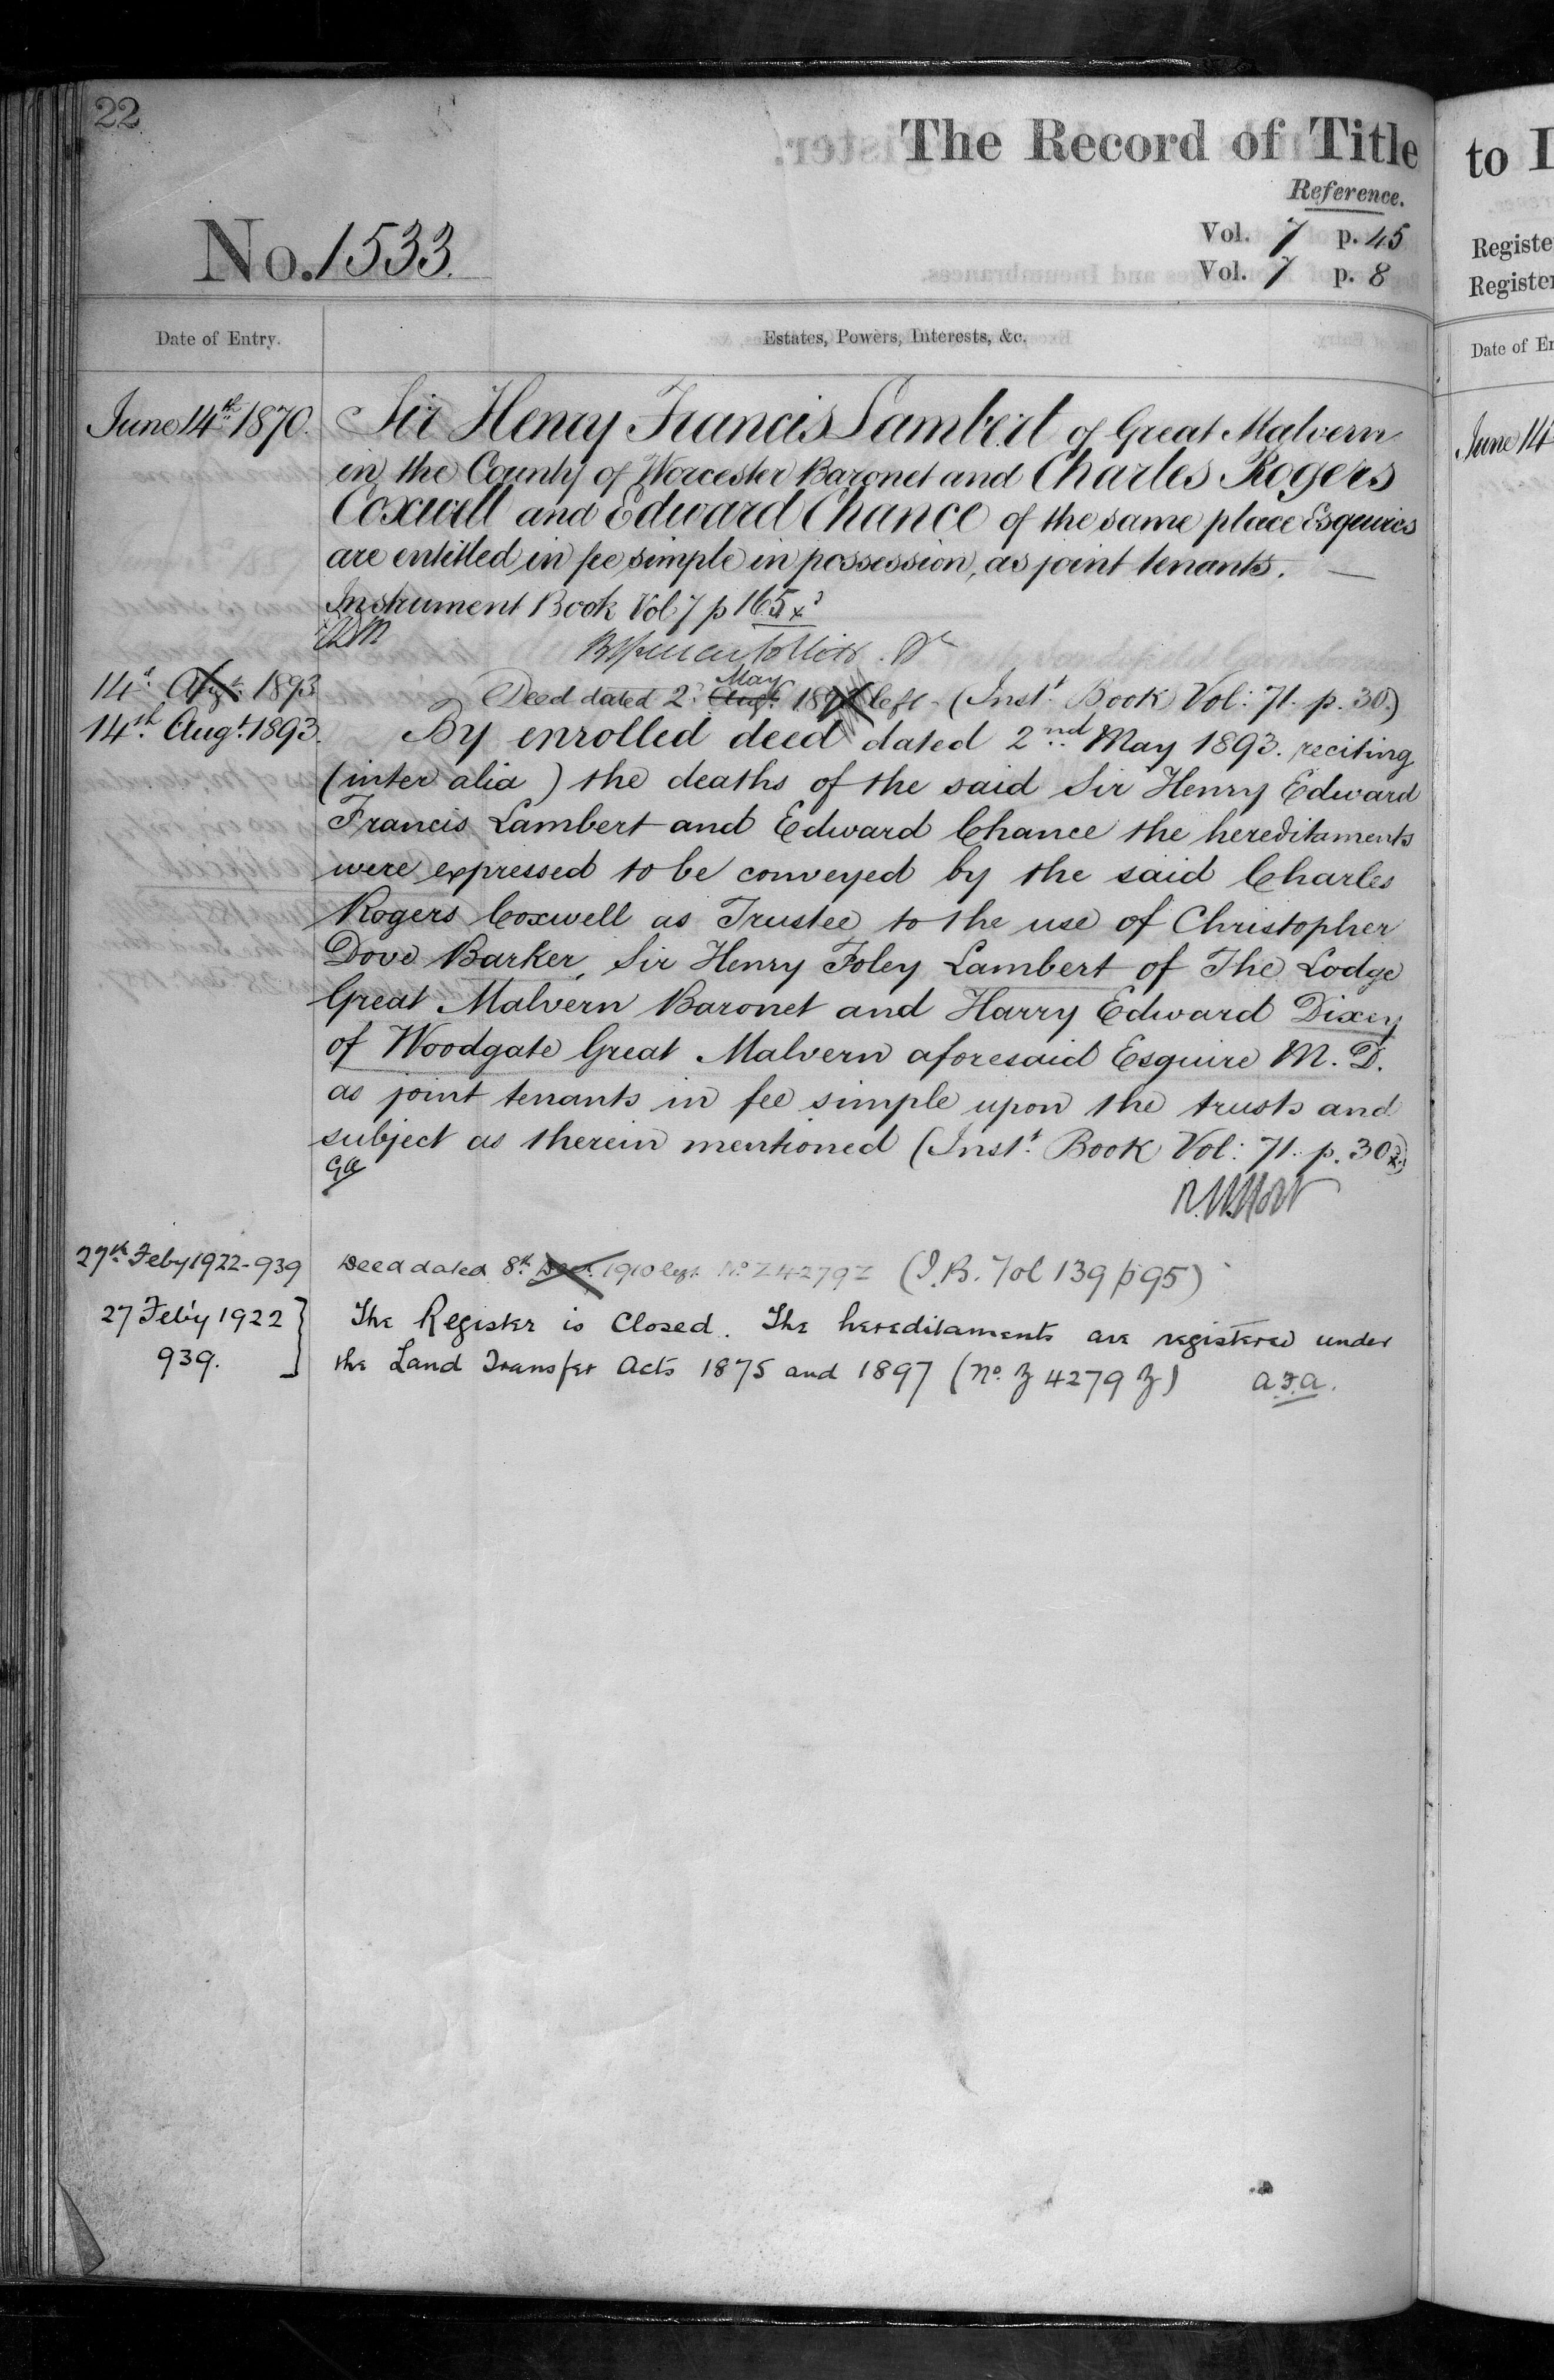 22
The Record of Title
to
Reference.
No. 1533.
Vol. 7 p. 45
Vol. 7 p. 8
Registe
Register
Date of Entry.
Estates, Powers, Interests, &c.
Date of En
June 14th 1870.
Sir Henry Francis Lambert of Great Malvern
in the County of Worcester Baronet and Charles Rogers
Coxwell and Edward Chance of the same place Esquires
are entitled in fee simple in possession, as joint tenants.
Instrument Book Vol 7 p 165
June 14
14th 1893
Deed dated 2d Augt May left (Inst. Book Vol: 71. p. 30.)
14th Augt. 1893.
By enrolled deed dated 2nd May 1893. reciting
(inter alia) the deaths of the said Sir Henry Edward
Francis Lambert and Edward Chance the hereditaments
were expressed to be conveyed by the said Charles
Rogers Coxwell as Trustee to the use of Christopher
Dove Barker, Sir Henry Foley Lambert of The Lodge
Great Malvern Baronet and Harry Edward Dixey
of Woodgate Great Malvern aforesaid Esquire M.D.
as joint tenants in fee simple upon the trusts and
subject as therein mentioned (Inst. Book Vol: 71. p. 30
27th Feby 1922-939
Deed dated 8th 1910 left No Z4279Z (I.B. Vol 139 p 95)
27 Feby 1922
939.
The Register is Closed. The hereditaments are registered under
the Land Transfer Acts 1875 and 1897 (No. Z 4279 Z) a.F.a.